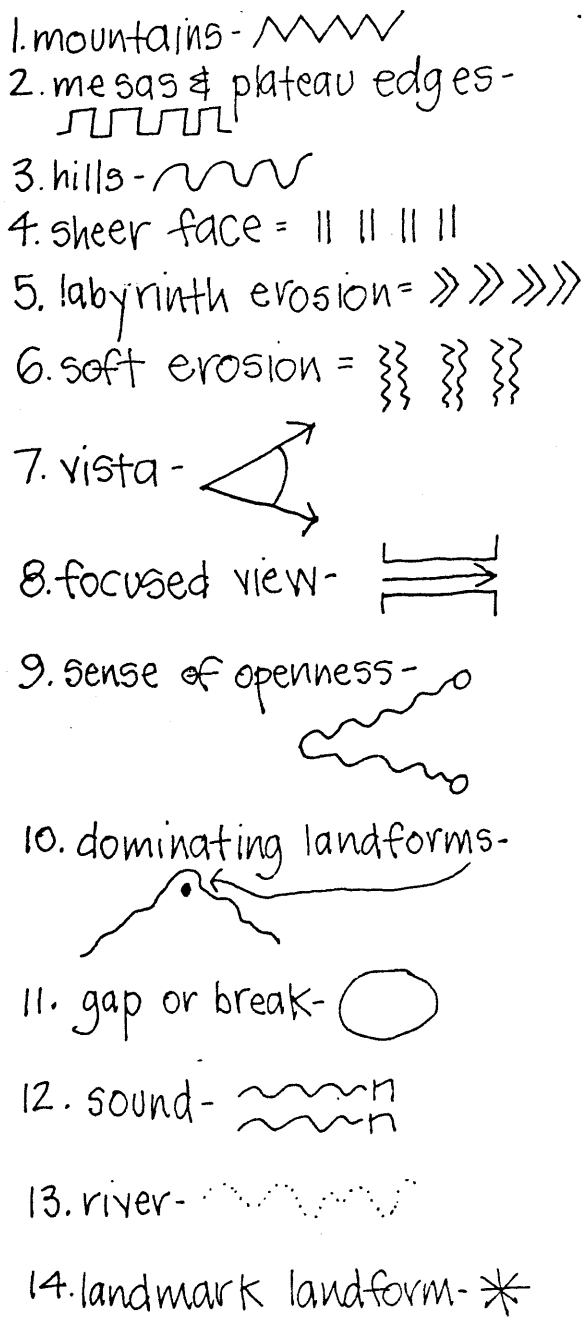 1. mountains -
2. mesas & plateau edges -
3. hills -
4. sheer face =
5. labyrinth erosion =
6. soft erosion =
7. vista -
8. focused view -
9. sense of openness -
10. dominating landforms -
11. gap or break -
12. sound -
13. river -
14. landmark landform -